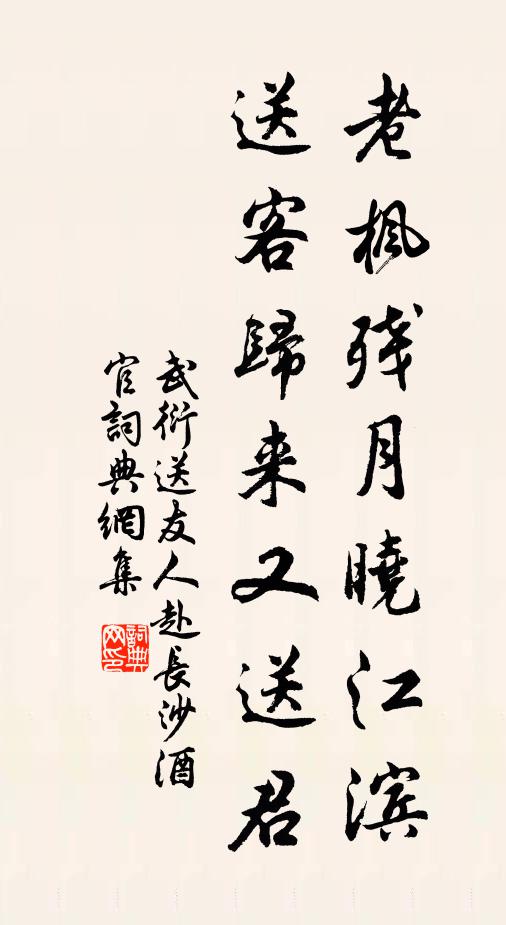 老枫残月曉江滨
送客歸来又送君
武衍送友人赴長沙酒
官詞典網集
詞典网印